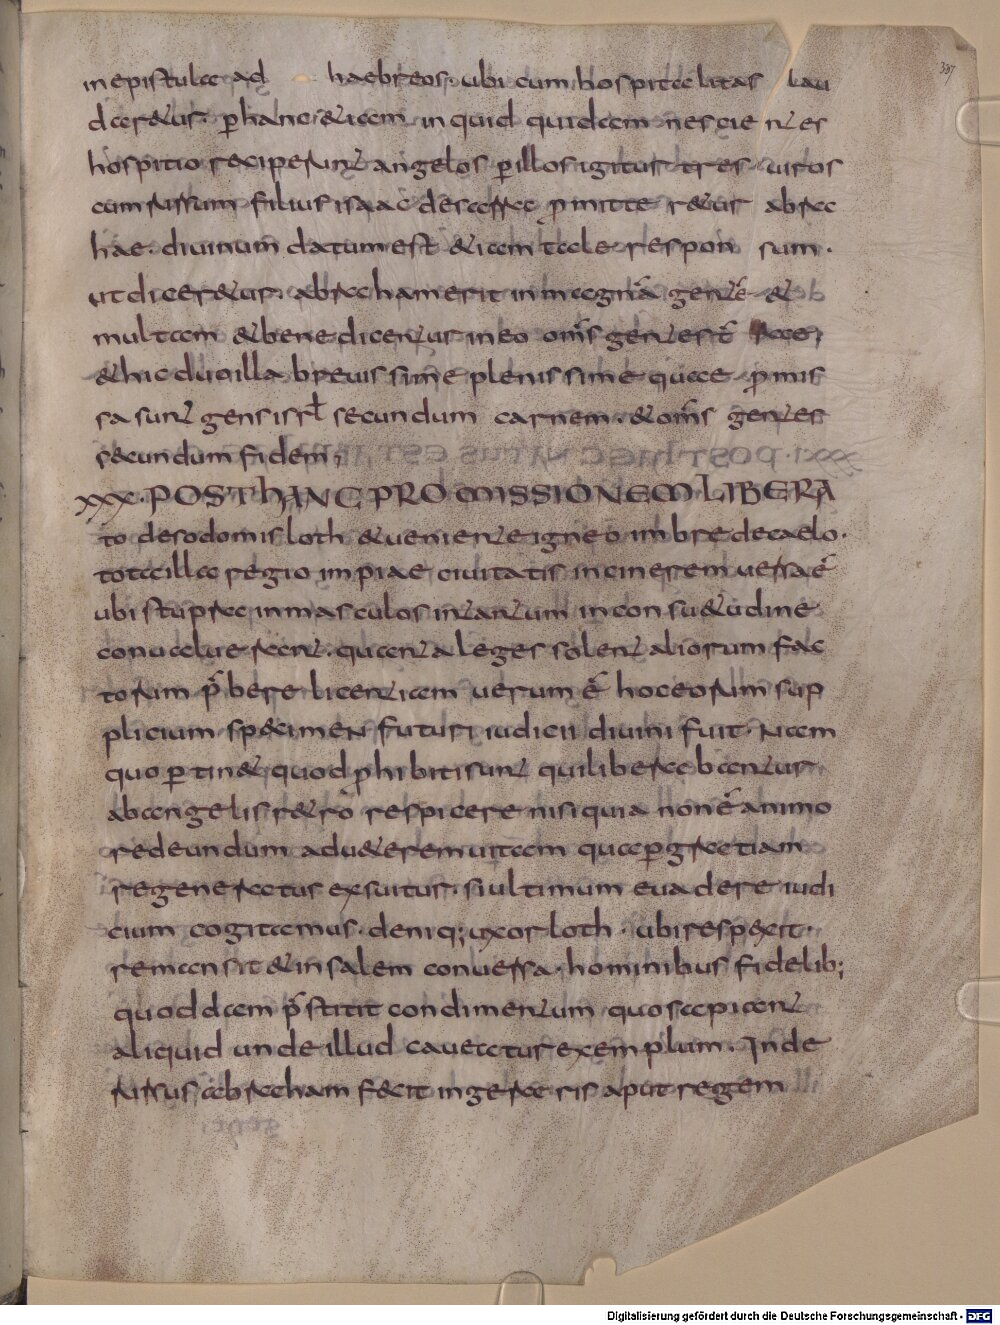 in epistula ad haebreos. ubi cum hospitalitas lau
daretur. p hanc & iam inquid quidam nescientes
hospitio receperunt angelos. p illos igitur tres uiros
cum rursum filius isaac de sarra pmitteretur abra
hae. diuinum datum est & iam tale responsum.
ut diceretur. abraham erit in magnā gentē &
multam & benedicentur in eo oms gentes
& hic duo illa breuissime plenissime quae pmis
sa sunt gens isrl secundum carnem. & oms gentes
secundum fidem;
XXX. POST hANC PROMISSIONEM LIBERA
to de sodomis loth & ueniente igneo imbre de caelo.
tota illa regio impiae ciuitatis in cinerem uersa ē
ubi stupra in masculos in tantum in consuetudine
conualuerant. quanta leges solent aliorum fac
torum p̄bere licentiam uerum ē hoc eorum sup
plicium specimen futuri iudicii diuini fuit. Nam
quo p tinet quod phibiti sunt qui liberabantur
ab angelis retro respicere nisi quia non ē animo
redeundum ad ueterem uitam qua p gratiam
regeneratus exuitur. si ultimum euadere iudi
cium cogitamus. deniq; uxor loth. ubi respexit.
remansit & in salem conuersa. hominibus fidelib;
quoddam p̄stitit condimentum quo sapiant
aliquid unde illud caueatur exemplum. Inde
rursus abraham fecit in geraris aput regem
337
Digitalisierung gefördert durch die Deutsche Forschungsgemeinschaft - DFG